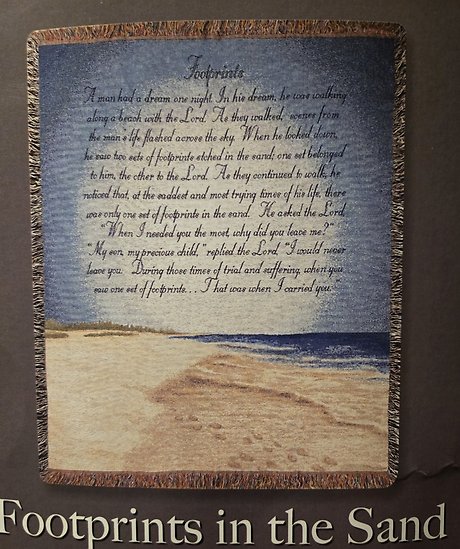 Footprints
A man had a dream one night. In his dream, he was walking
along a beach with the Lord. As they walked, scenes from
the man's life flashed across the sky. When he looked down,
he saw two sets of footprints etched in the sand; one set belonged
to him, the other to the Lord. As they continued to walk, he
noticed that, at the saddest and most trying times of his life, there
was only one set of footprints in the sand. He asked the Lord,
"When I needed you the most, why did you leave me?"
"My son, my precious child," replied the Lord, "I would never
leave you. During those times of trial and suffering, when you
saw one set of footprints. . . That was when I carried you."
Footprints in the Sand